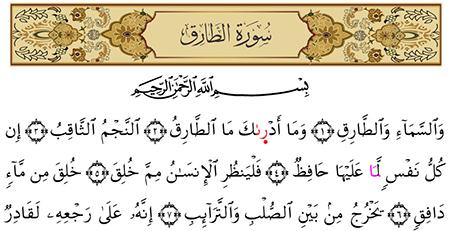 سُورَةُ الطَّارِقِ
بِسْمِ اللَّهِ الرَّحْمَٰنِ الرَّحِيمِ
وَالسَّمَآءِ وَالطَّارِقِ ﴿١﴾ وَمَآ أَدْرٜىٰكَ مَا الطَّارِقُ ﴿٢﴾ النَّجْمُ الثَّاقِبُ ﴿٣﴾ إِن
كُلُّ نَفْسٍ لَّمَا عَلَيْهَا حَافِظٌ ﴿٤﴾ فَلْيَنظُرِ الْإِنسَٰنُ مِمَّ خُلِقَ ﴿٥﴾ خُلِقَ مِن مَّآءٍ
دَافِقٍ ﴿٦﴾ يَخْرُجُ مِنۢ بَيْنِ الصُّلْبِ وَالتَّرَآئِبِ ﴿٧﴾ إِنَّهُۥ عَلَىٰ رَجْعِهِۦ لَقَادِرٌ